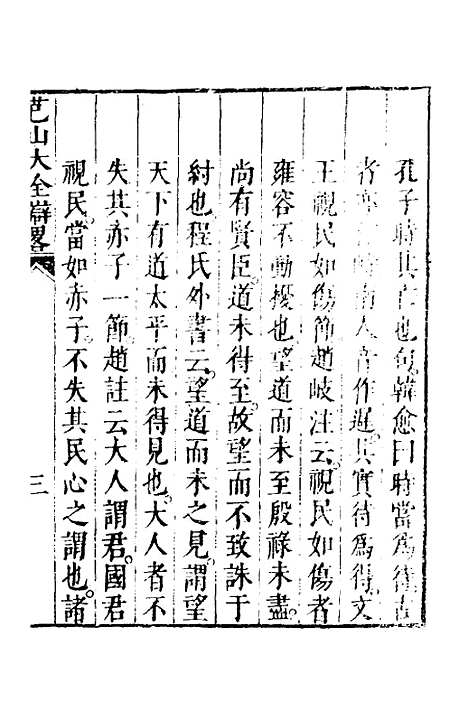 孔子時其亡也句韓愈曰時當為待古
者亦作時南人音作遲其實待為得文
王視民如傷節趙岐注云視民如傷者
雍容不動擾也望道而未至殷祿未盡
尚有賢臣道未得至故望而不致誅于
紂也程氏外書云望道而未之見謂望
天下有道太平而未得見也大人者不
失其赤子一節趙註云大人謂君國君
視民當如赤子不失其民心之謂也諸
芭山大全辯畧 三